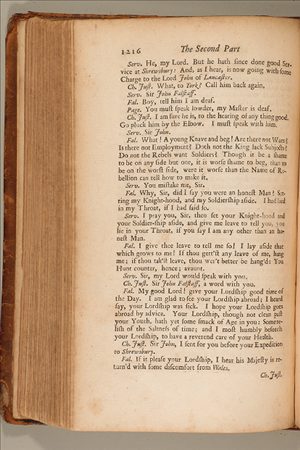 1216 The Second Part
Serv. He, my Lord. But he hath since done good Ser-
vice at Shrewsbury: And, as I hear, is now going with some
Charge to the Lord John of Lancaster.
Ch. Just. What, to York? Call him back again.
Serv. Sir John Falstaff.
Fal. Boy, tell him I am deaf.
Page. You must speak lowder, my Master is deaf.
Ch. Just. I am sure he is, to the hearing of any thing good.
Go pluck him by the Elbow. I must speak with him.
Serv. Sir John.
Fal. What! A young Knave and beg! Are there not Wars?
Is there not Employment? Doth not the King lack Subjects?
Do not the Rebels want Soldiers? Though it be a shame
to be on any side but one, it is worse shame to beg, than to
be on the worst side, were it worse than the Name of Re-
bellion can tell how to make it.
Serv. You mistake me, Sir.
Fal. Why, Sir, did I say you were an honest Man? Set-
ting my Knight-hood, and my Soldiership aside. I had lied
in my Throat, if I had said so.
Serv. I pray you, Sir, then set your Knight-hood and
your Soldier-ship aside, and give me leave to tell you, you
lie in your Throat, if you say I am any other than an ho-
nest Man.
Fal. I give thee leave to tell me so? I lay aside that
which grows to me? If thou get'st any leave of me, hang
me; if thou tak'st leave, thou wer't better be hang'd: You
Hunt counter, hence; avaunt.
Serv. Sir, my Lord would speak with you.
Ch. Just. Sir John Falstaff, a word with you.
Fal. My good Lord! give your Lordship good time of
the Day. I am glad to see your Lordship abroad; I heard
say, your Lordship was sick. I hope your Lordship goes
abroad by advice. Your Lordship, though not clean past
your Youth, hath yet some smack of Age in you: Some re-
lish of the Saltness of time; and I most humbly beseech
your Lordship, to have a reverend care of your Health.
Ch. Just. Sir John, I sent for you before your Expedition
to Shrewsbury.
Fal. If it please your Lordship, I hear his Majesty is re-
turn'd with some discomfort from Wales.
Ch. Just.